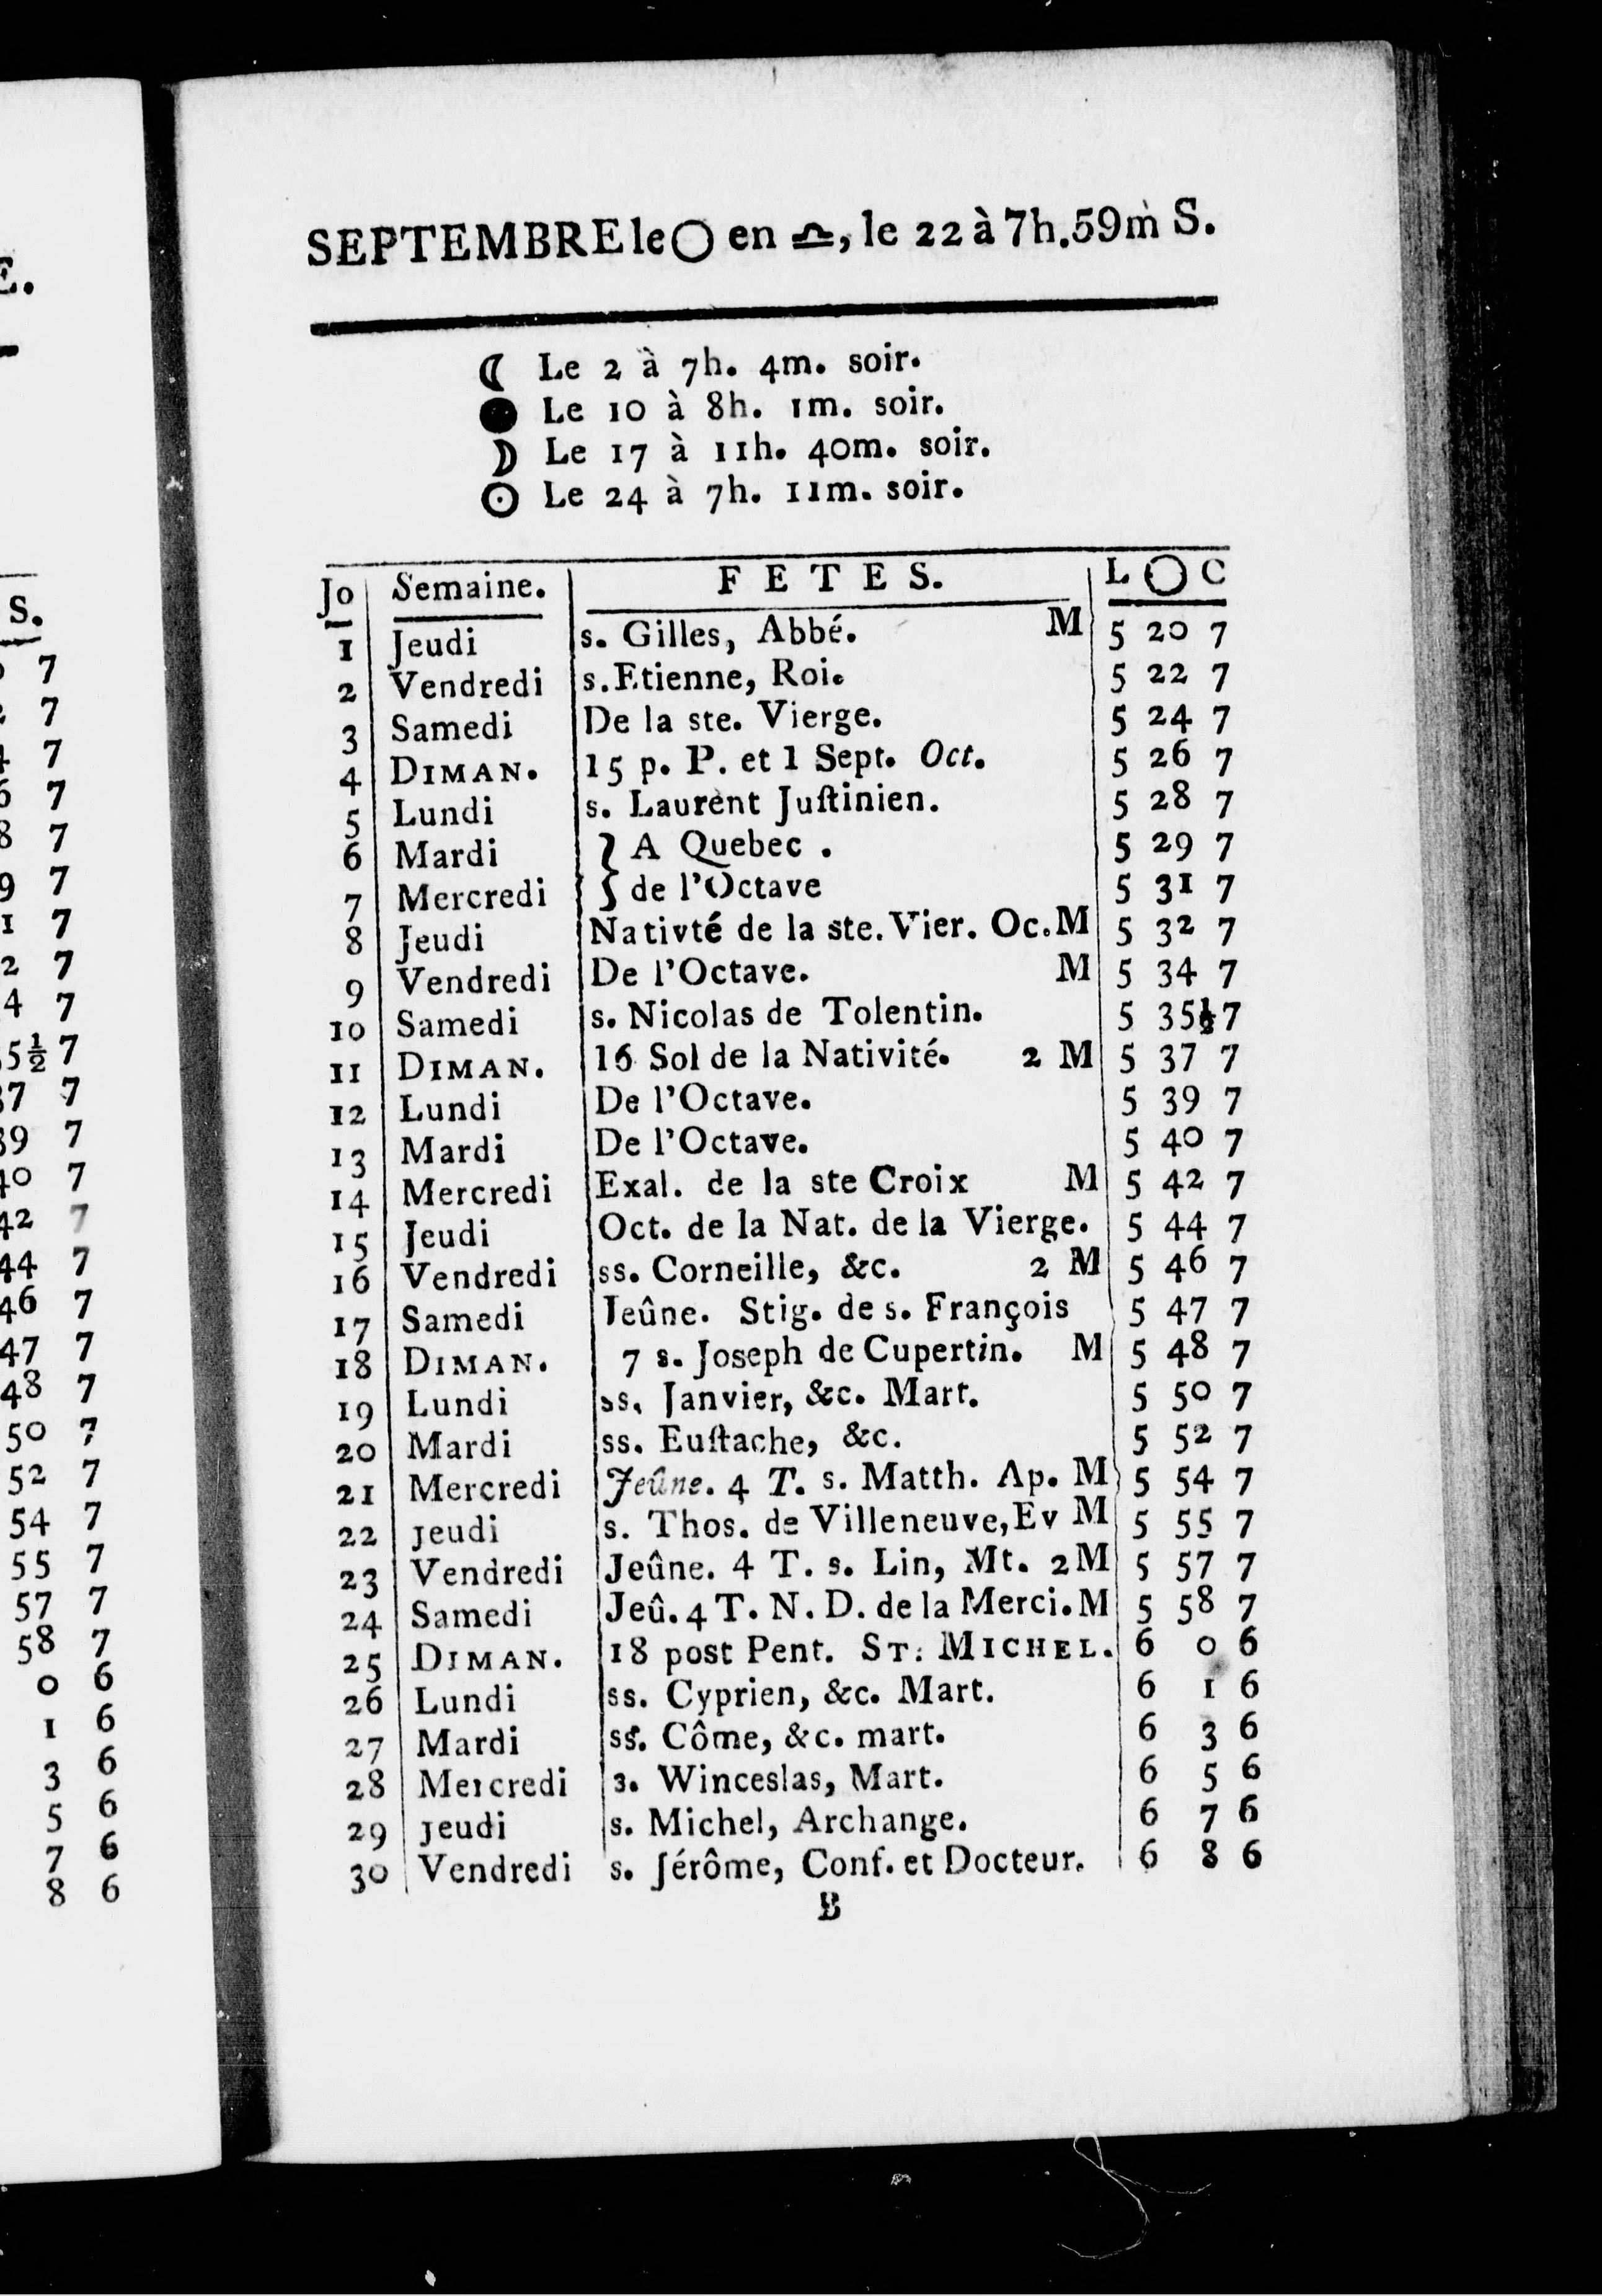 SEPTEMBRE le ◯ en ♎, le 22 à 7h.59m S.
☾ Le 2 à 7h. 4m. soir.
● Le 10 à 8h. 1m. soir.
☽ Le 17 à 11h. 40m. soir.
☉ Le 24 à 7h. 11m. soir.
Jo Semaine. FETES. L ◯ C
1 Jeudi s. Gilles, Abbé. M 5 20 7
2 Vendredi s. Etienne, Roi. 5 22 7
3 Samedi De la ste. Vierge. 5 24 7
4 DIMAN. 15 p. P. et 1 Sept. Oct. 5 26 7
5 Lundi s. Laurent Juſtinien. 5 28 7
6 Mardi } A Quebec . 5 29 7
7 Mercredi } de l'Octave 5 31 7
8 Jeudi Nativté de la ste. Vier. Oc. M 5 32 7
9 Vendredi De l'Octave. M 5 34 7
10 Samedi s. Nicolas de Tolentin. 5 35½ 7
11 DIMAN. 16 Sol de la Nativité. 2 M 5 37 7
12 Lundi De l'Octave. 5 39 7
13 Mardi De l'Octave. 5 40 7
14 Mercredi Exal. de la ste Croix M 5 42 7
15 Jeudi Oct. de la Nat. de la Vierge. 5 44 7
16 Vendredi ss. Corneille, &c. 2 M 5 46 7
17 Samedi Jeûne. Stig. de s. François 5 47 7
18 DIMAN. 7 s. Joseph de Cupertin. M 5 48 7
19 Lundi ss. Janvier, &c. Mart. 5 50 7
20 Mardi ss. Euſtache, &c. 5 52 7
21 Mercredi Jeûne. 4 T. s. Matth. Ap. M 5 54 7
22 Jeudi s. Thos. de Villeneuve, Ev M 5 55 7
23 Vendredi Jeûne. 4 T. s. Lin, Mt. 2 M 5 57 7
24 Samedi Jeû. 4 T. N. D. de la Merci. M 5 58 7
25 DIMAN. 18 post Pent. ST. MICHEL. 6 0 6
26 Lundi ss. Cyprien, &c. Mart. 6 1 6
27 Mardi ss. Côme, &c. mart. 6 3 6
28 Mercredi s. Winceslas, Mart. 6 5 6
29 Jeudi s. Michel, Archange. 6 7 6
30 Vendredi s. Jérôme, Conf. et Docteur. 6 8 6
B